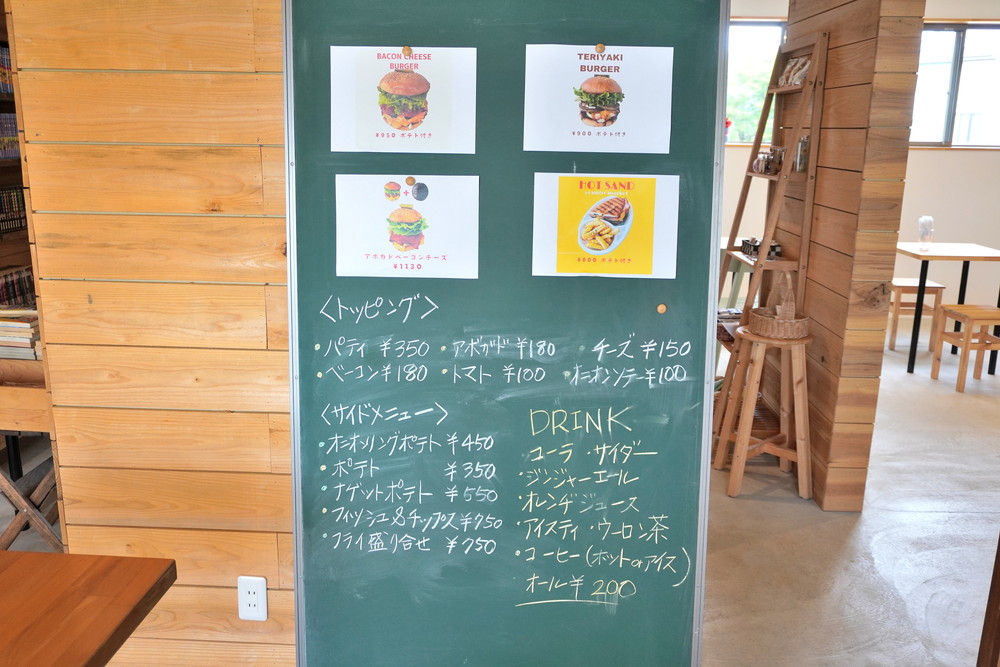 BACON CHEESE
BURGER
¥850 ポテト付き
TERIYAKI
BURGER
¥900 ポテト付き
アボカドベーコンチーズ
¥1130
HOT SAND
¥800 ポテト付き
〈トッピング〉
・パティ ¥350 ・アボガド ¥180 ・チーズ ¥150
・ベーコン ¥180 ・トマト ¥100 ・オニオンソテー ¥100
〈サイドメニュー〉
・オニオンリングポテト ¥450
・ポテト ¥350
・ナゲットポテト ¥550
・フィッシュ&チップス ¥750
・フライ盛り合せ ¥750
DRINK
・コーラ ・サイダー
・ジンジャーエール
・オレンヂジュース
・アイスティ ・ウーロン茶
・コーヒー(ホットorアイス)
オール¥200